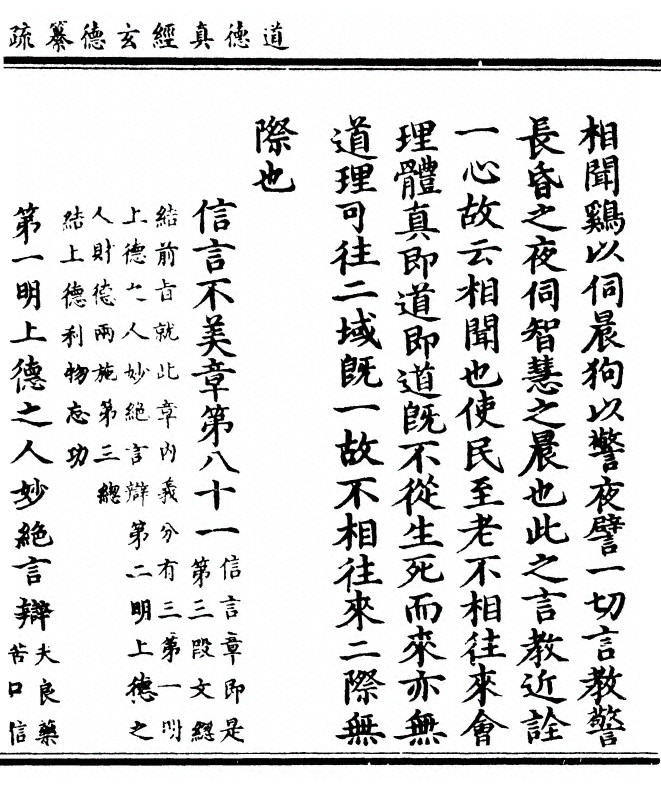 道德真經玄德纂疏
相聞雞以伺晨狗以警夜譬一切言教警
長昏之夜伺智慧之晨也此之言教近詮
一心故云相聞也使民至老不相往來會
理體真即道即道既不從生死而來亦無
道理可往二域既一故不相往來二際無
際也
信言不美章第八十一
信言章即是
第三段文總
結前旨就此章內義分有三第一明
上德之人妙絕言辯第二明上德之
人財德兩施第三總
結上德利物忘功
第一明上德之人妙絕言辯
夫良藥
苦口信